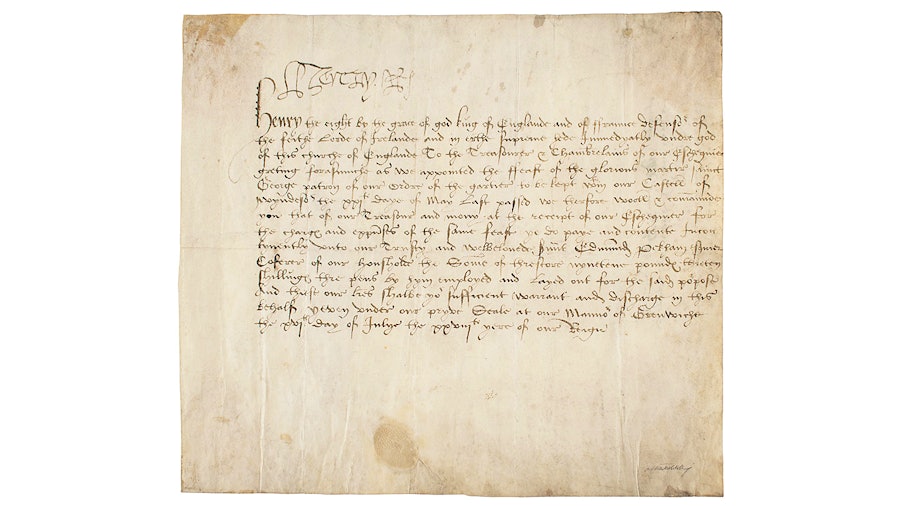 Henry R
Henry the eight by the grace of god king of Englande and of ffraunce defenso^r of
the feithe Lorde of Irelande and in erthe Supreme hede Immedyatly undre god
of this churche of Englande To the Treasourer & Chambrelains of our Eschequier
greting forasmuche as we appointed the ffeast of the glorious martir saint
George patron of our Ordre of the gartier to be kept w^tin our Castell of
Wyndeso^r the xxj^ti daye of May Last passed we therfore woll & comaunde
you that of our Treasure and money at the receipt of our Eschequier for
the charg and expenses of the same feast ye do paye and contente incon
tynently unto our Trusty and Welbeloved Edmund Pekham
Coferer of our houshold the Some of threscore nyntene pound
shilling thre pens by hym employed and Layed out for the said p^ropose
And thiese our lres shalbe yo^r sufficient warrant and discharge in this
behalf yeven undre our pryve Seale at our Mano^r of Grenwiche
the xvj^th day of Julye the xxviij^th yere of our Reigne